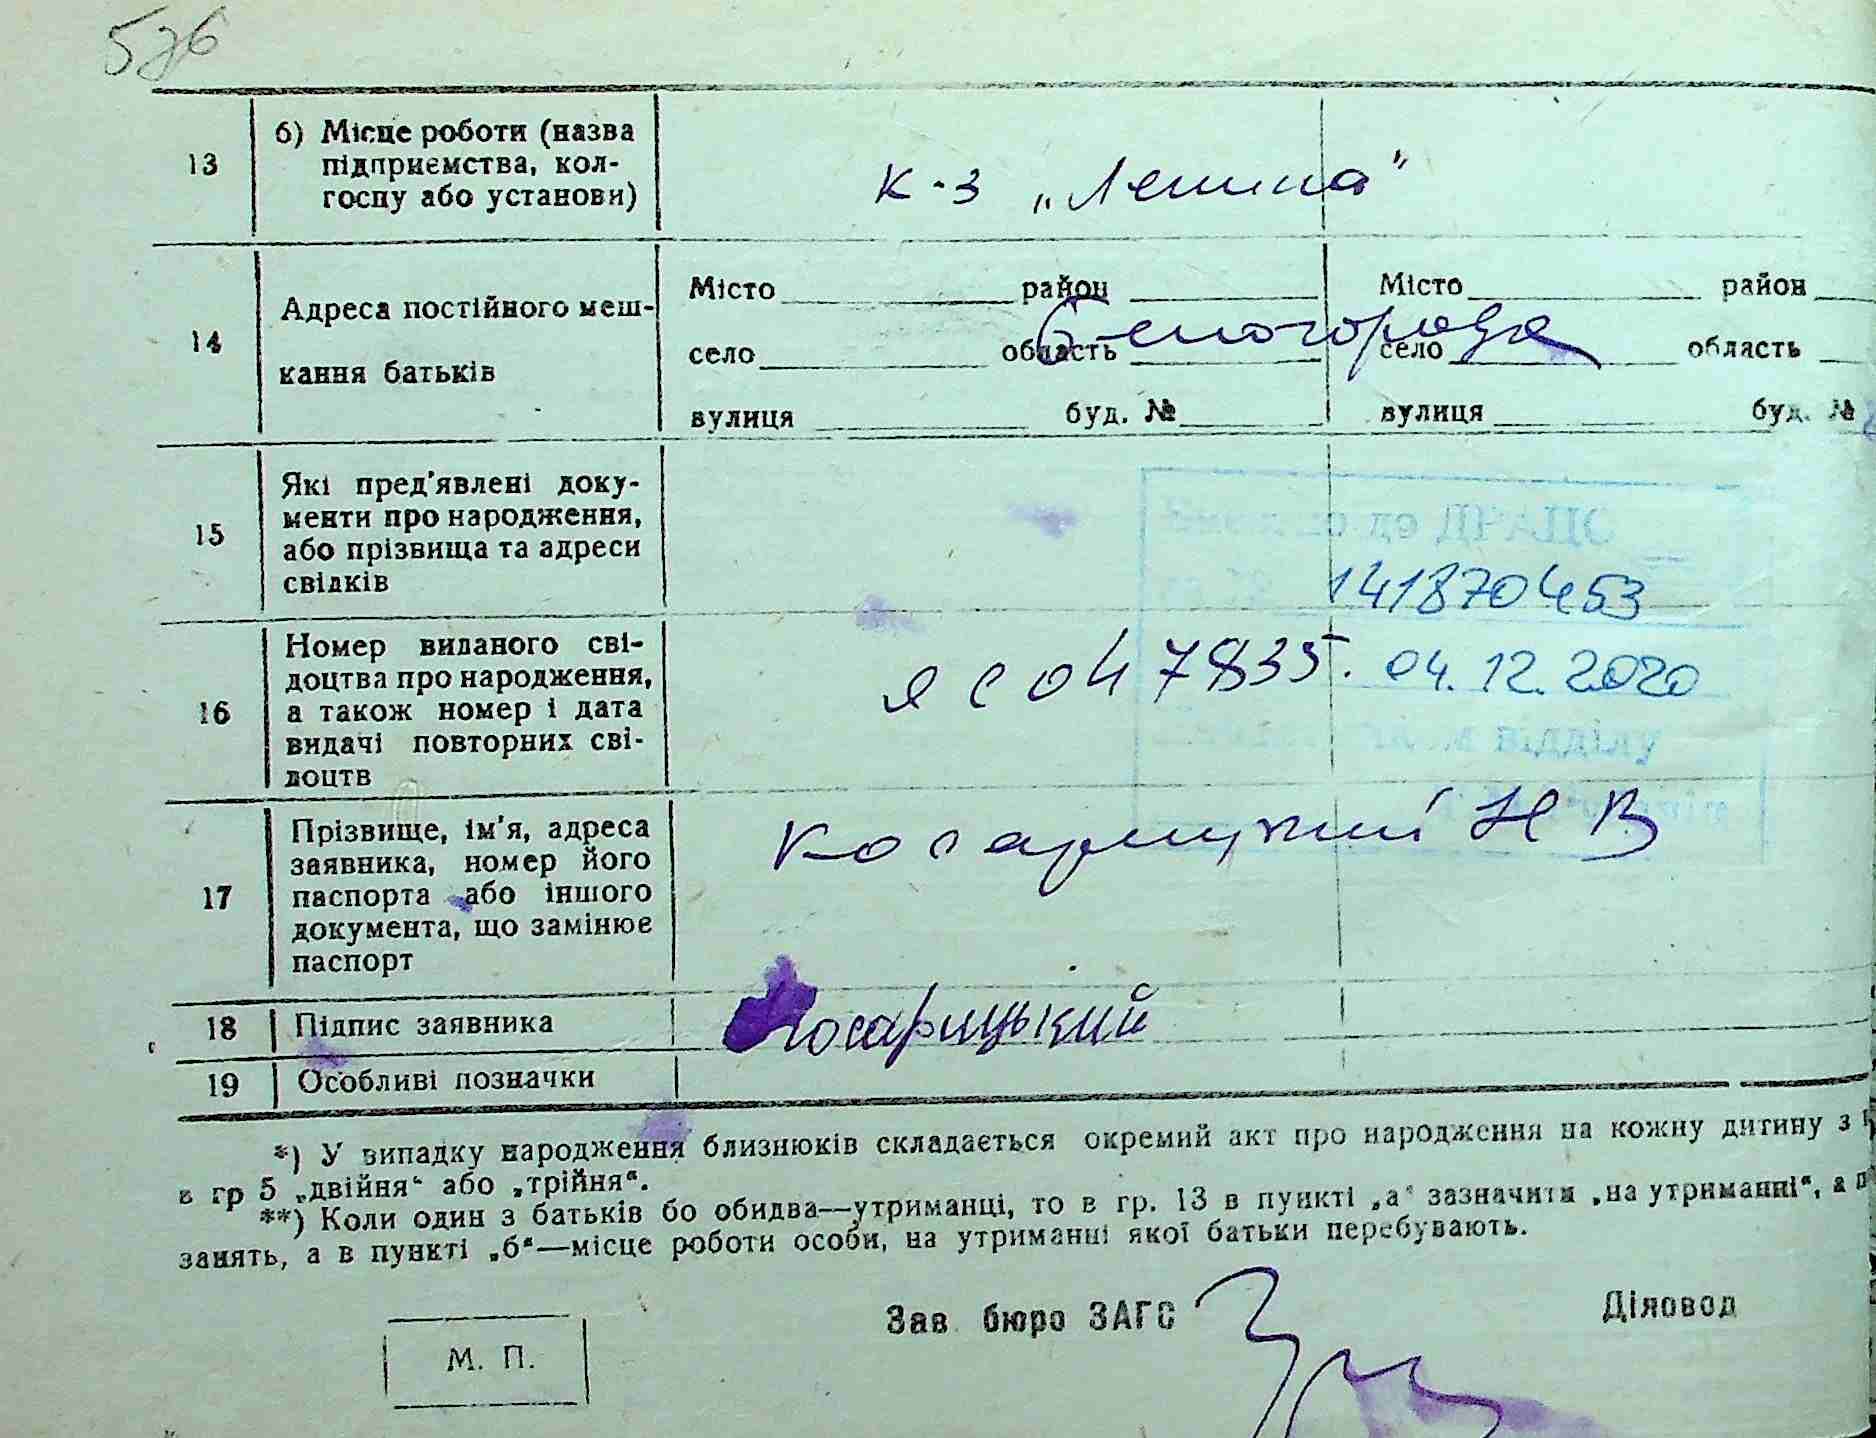 576
13
б) Місце роботи (назва
підприємства, кол-
госпу або установи)
к-з „Ленина"
14
Адреса постійного меш-
кання батьків
Місто район
село область
вулиця буд. №
Місто район
село область
вулиця буд. №
Білогородка
15
Які пред'явлені доку-
менти про народження,
або прізвища та адреси
свідків
до ДРАЦС
141870453
16
Номер виданого сві-
доцтва про народження,
а також номер і дата
видачі повторних сві-
доцтв
я с 047835.
04.12.2020
відділу
17
Прізвище, ім'я, адреса
заявника, номер його
паспорта або іншого
документа, що замінює
паспорт
Н В
18
Підпис заявника
Косарицький
19
Особливі позначки
*) У випадку народження близнюків складається окремий акт про народження на кожну дитину з
в гр 5 „двійня“ або „трійня“.
**) Коли один з батьків бо обидва—утриманці, то в гр. 13 в пункті „а“ зазначити „на утриманні“, а
занять, а в пункті „б“—місце роботи особи, на утриманні якої батьки перебувають.
Зав. бюро ЗАГС
Діловод
М. П.